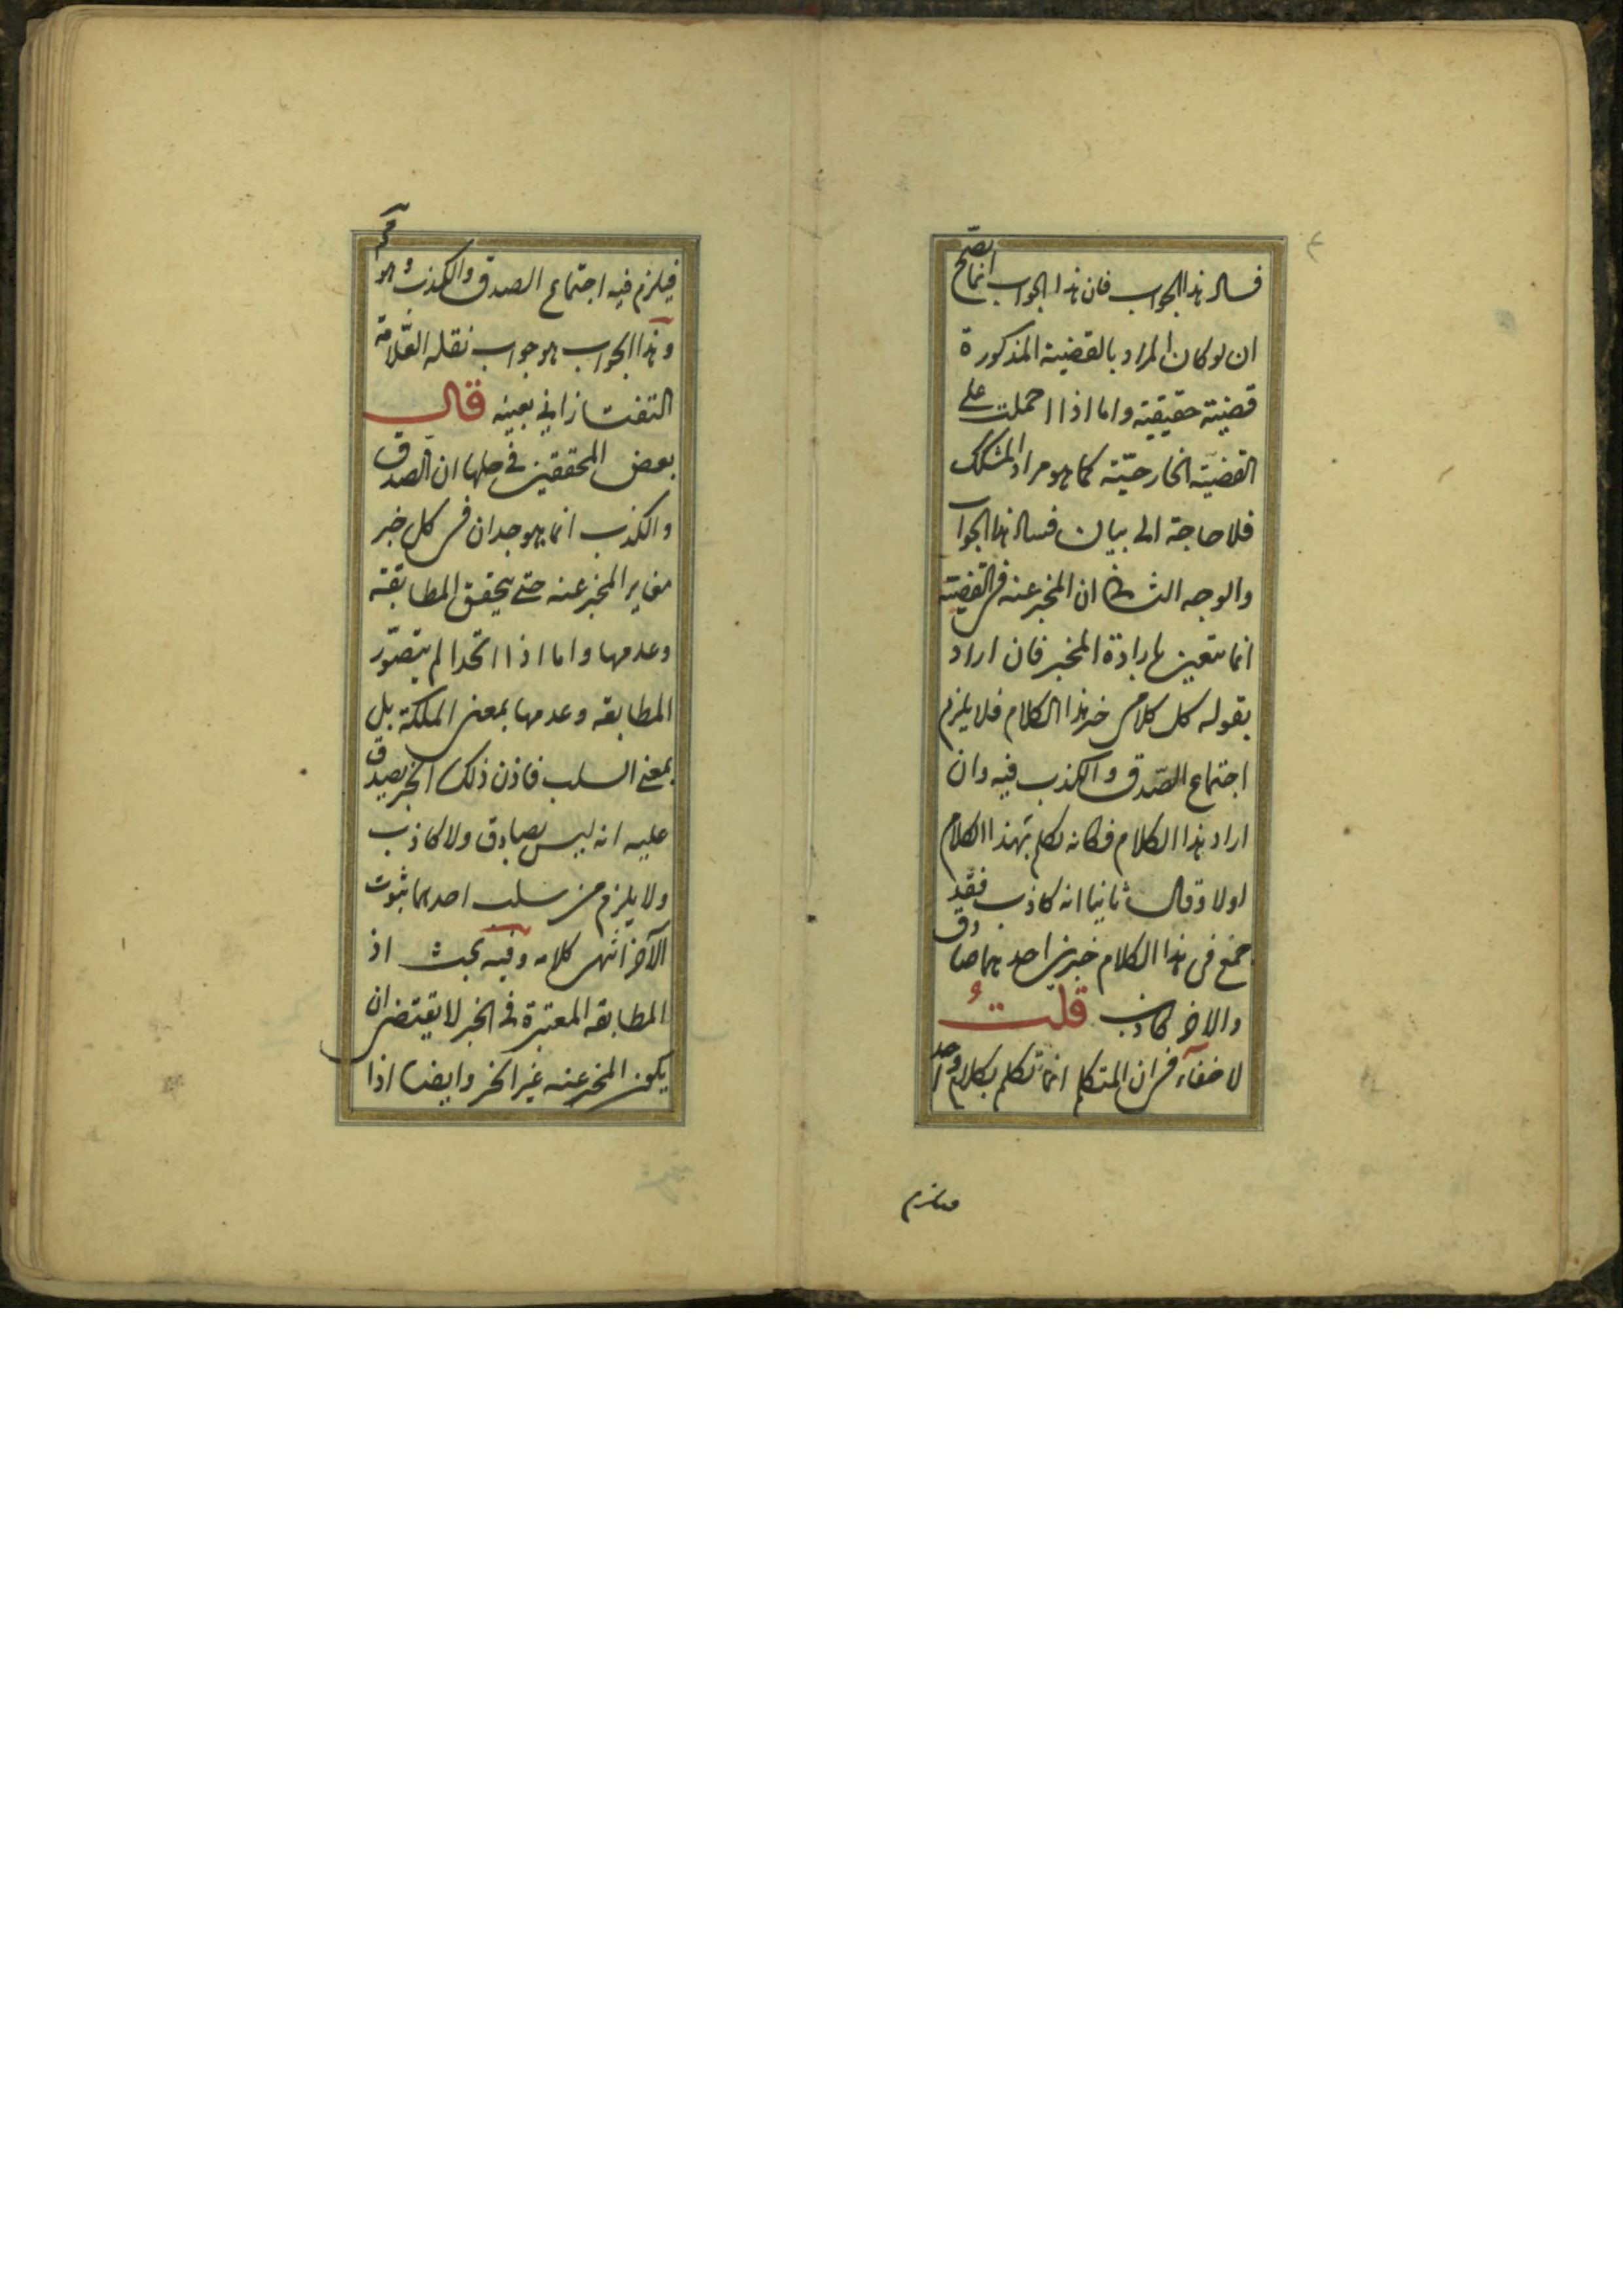 فساد هذا الجواب فان هذا الجواب انما يصح
ان لو كان المراد بالقضية المذكورة
قضية حقيقية واما اذا احملت على
القضية الخارجيّة كما هو مراد المشكك
فلا حاجة الى بيان فساد هذا الجواب
والوجه الثاني ان المخبر عنه في القضية
انما يتعين بارادة المخبر فان اراد
بقوله كل كلامي خبر هذا الكلام فلا يلزم
اجتماع الصّدق والكذب فيه وان
اراد هذا الكلام فكانه تكلم بهذا الكلام
اولا وقال ثانيا انه كاذب فقد
جمع في هذا الكلام خبرين احدهما صادق
والاخر كاذب قلتُ
لا خفاء في ان المتكلم انما تكلم بكلام واحد
فيلزم
فيلزم فيه اجتماع الصدق والكذب وهو مح
وهذا الجواب هو جواب نقله العّلامة
التفتازاني بعينه قال
بعض المحققين في حلها ان الصدق
والكذب انما يوجدان في كل خبر
مغاير المخبر عنه حتى يتحقق المطابقة
وعدمها واما اذا اتحدا لم يتصوّر
المطابقه وعدمها بمعنى الملكة بل
بمعنى السلب فاذن ذلك الخبر يصدق
عليه انه ليس بصادق ولا كاذب
ولا يلزم من سلب احدهما ثبوت
الآخر انتهى كلامه وفيه بحث اذ
المطابقه المعتبرة في الخبر لا يقتضي ان
يكون المخبر عنه غير الخبر وايضا اذا